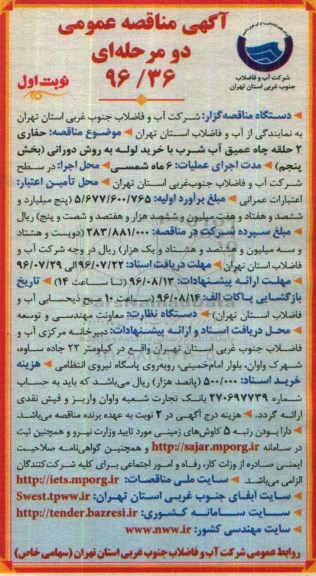 آگهی مناقصه عمومی
دو مرحله‌ای
۹۶/۳۶
نوبت اول
شرکت آب و فاضلاب
جنوب غربی استان تهران
دستگاه مناقصه‌گزار: شرکت آب و فاضلاب جنوب غربی استان تهران
به نمایندگی از آب و فاضلاب استان تهران موضوع مناقصه: حفاری
۲ حلقه چاه عمیق آب شرب با خرید لوله به روش دورانی (بخش
پنجم) مدت اجرای عملیات: ۶ ماه شمسی محل اجرا: در سطح
شرکت آب و فاضلاب جنوب‌غربی استان تهران محل تأمین اعتبار:
اعتبارات عمرانی مبلغ برآورد اولیه: ۵/۶۷۷/۶۰۰/۷۶۵ (پنج میلیارد و
ششصد و هفتاد و هفت میلیون و ششصد هزار و هفتصد و شصت و پنج) ریال
مبلغ سپرده شرکت در مناقصه: ۲۸۳/۸۸۱/۰۰۰ (دویست و هشتاد
و سه میلیون و هشتصد و هشتاد و یک هزار) ریال در وجه شرکت آب و
فاضلاب استان تهران مهلت دریافت اسناد: ۹۶/۰۷/۲۲ الی ۹۶/۰۷/۲۹
مهلت ارائه پیشنهادات: ۹۶/۰۸/۱۳ (تا ساعت ۱۴) تاریخ
بازگشایی پاکات الف: ۹۶/۰۸/۱۴ (ساعت ۱۰ صبح ذیحسابی آب و
فاضلاب استان تهران) دستگاه نظارت: معاونت مهندسی و توسعه
محل دریافت اسناد و ارائه پیشنهادات: دبیرخانه مرکزی آب و
فاضلاب جنوب غربی استان تهران واقع در کیلومتر ۲۲ جاده ساوه،
شهرک واوان، بلوار امام‌خمینی، روبه‌روی پاسگاه نیروی انتظامی هزینه
خرید اسناد: ۵۰۰/۰۰۰ (پانصد هزار) ریال می‌باشد که باید به حساب
شماره ۲۷۰۶۹۷۷۳۹ بانک تجارت شعبه واوان واریز و فیش نقدی
ارائه گردد. هزینه درج آگهی در ۲ نوبت به عهده برنده مناقصه می‌باشد.
دارا بودن رتبه ۵ کاوش‌های زمینی مورد تایید وزارت نیرو و همچنین ثبت
در سامانه http://sajar.mporg.ir و همچنین گواهی‌نامه صلاحیت
ایمنی صادره از وزات کار، رفاه و امور اجتماعی برای کلیه شرکت‌کنندگان
الزامی می‌باشد. سایت ملی مناقصات: http://iets.mporg.ir
سایت آبفای جنوب غربی استان تهران: Swest.tpww.ir
سایت سامانه کشوری: http://tender.bazresi.ir
سایت مهندسی کشور: www.nww.ir
روابط عمومی شرکت آب و فاضلاب جنوب غربی استان تهران (سهامی خاص)